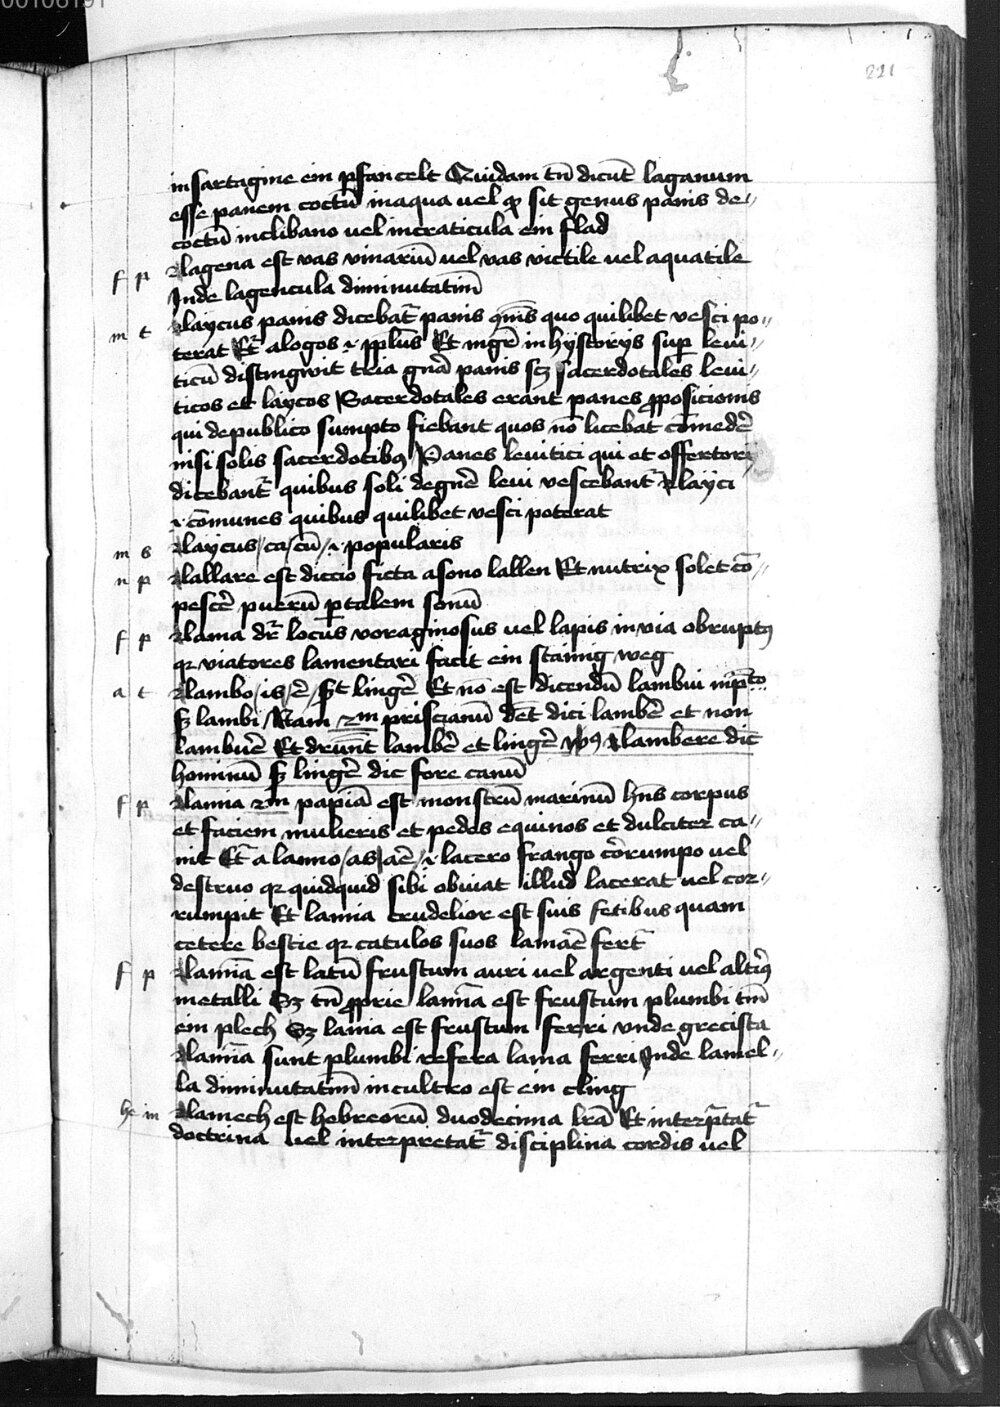 00106191
221
in sartagine ein pfancelt Quidam tn̄ dicūt laganum
esse panem coctū in aqua uel ꝙ sit genus panis de⸗
coctū in clibano uel in craticula ein flad
f p lagena est vas vinariū uel vas victile uel aquatile
Inde lagencula diminutatim̄
m t laycus panis dicebat᷑ panis quo quilibet vesci po⸗
terat Et᷑ alogos .i. pp̄lus Et mgr̄ in hystorijs sup leui⸗
ticū distingwit tria gn̄a panis scꝫ sacerdotales leui⸗
ticos et laycos Sacerdotales erant panes ꝓposicionis
qui de publico sumpto fiebant quos nō licebat cōmedē
nisi solis sacerdotibꝰ Panes leuitici qui et offertorij
dicebant᷑ quibus soli de gnē̄ leui vescebant᷑ layci
.i. cōmunes quibus quilibet vesci poterat
m s laycus/ca/cū/.i. popularis
n p lallare est diccio ficta a sono lallen Et nutrix solet cō⸗
pescē puerū ꝑ talem sonū
f p lama dr̄ locus voraginosus uel lapis in via obruptꝰ
qꝛ viatores lamentari facit ein stainig weg
a t lambo/is/ē/ lingē Et nō est dicendū lambui in pt̄o
sꝫ lambi Nam 2m priscianū dēt dici lambē et non
lambuē Et drūnt lambē et lingē v̄sꝰ lambere dic
hominū sꝫ lingē dic fore canū
f p lamia 2m papiā est monstrū marinū hn̄s corpus
et faciem mulieris et pedes equinos et dulciter ca⸗
nit Et᷑ a lanio/as/aē/.i. lacero frango cōrrumpo uel
destruo qꝛ quidquid sibi obuiat illud lacerat uel cor⸗
rumpit Et lamia crudelior est suis fetibus quam
cetere bestie qꝛ catulos suos laniaē fert᷑
f p lamīa est latū frustum auri uel argenti uel altiꝰ
metalli Sꝫ tn̄ ꝓprie lamīa est frustum plumbi tm̄
ein plech Sꝫ lama est frustum ferri vnde grecista
lamīa sunt plumbi refera lama ferri Inde lamel⸗
la diminutatim̄ in cultro est ein cling
he m lamech est hebreorū duodecima lrā Et interp̄tat᷑
doctrina uel interpretat᷑ disciplina cordis uel